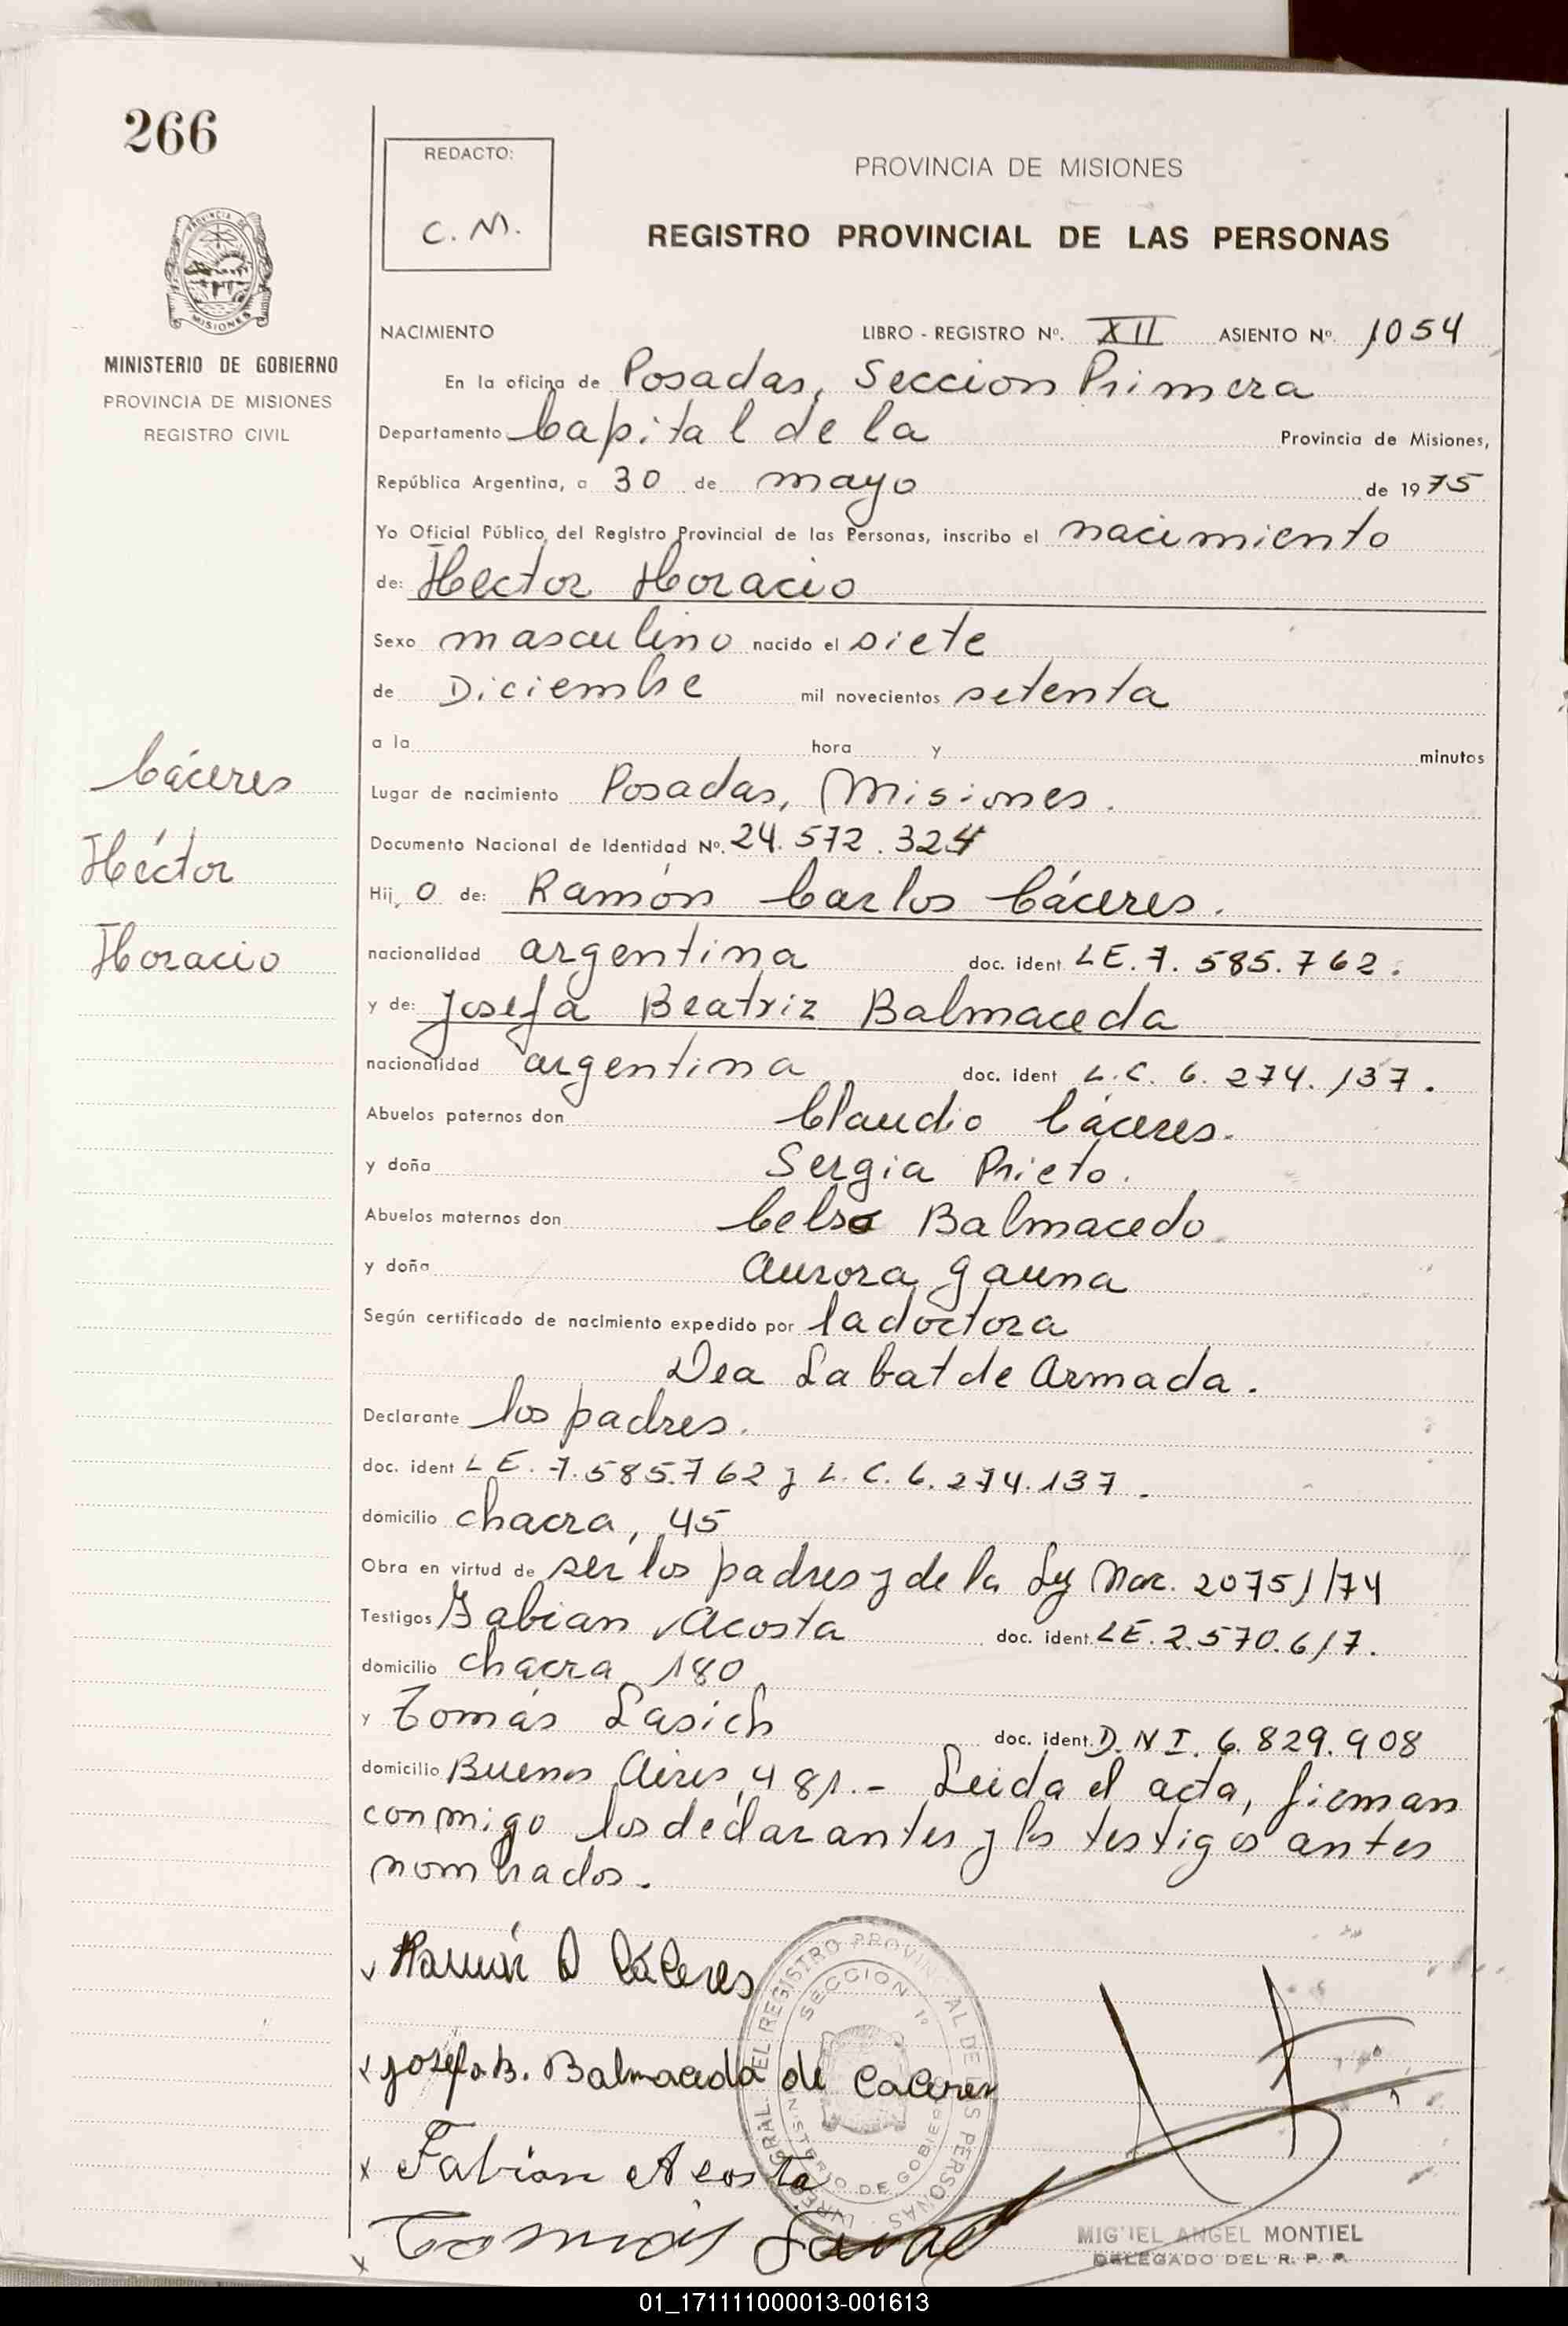 266
REDACTO:
C.M.
PROVINCIA DE MISIONES
REGISTRO PROVINCIAL DE LAS PERSONAS
PROVINCIA DE
MISIONES
MINISTERIO DE GOBIERNO
PROVINCIA DE MISIONES
REGISTRO CIVIL
NACIMIENTO LIBRO - REGISTRO Nº. XII ASIENTO Nº. 1054
En la oficina de Posadas, Seccion Primera
Departamento Capital de la Provincia de Misiones,
República Argentina, a 30 de mayo de 1975
Yo Oficial Público del Registro Provincial de las Personas, inscribo el nacimiento
de: Hector Horacio
Sexo masculino nacido el siete
de Diciembre mil novecientos setenta
a la hora y minutos
Cáceres
Héctor
Horacio
Lugar de nacimiento Posadas, Misiones.
Documento Nacional de Identidad Nº. 24.572.324
Hij o de: Ramón Carlos Cáceres.
nacionalidad argentina doc. ident LE.7.585.762.
y de: Josefa Beatriz Balmaceda
nacionalidad argentina doc. ident L.C. 6.274.137.
Abuelos paternos don Claudio Cáceres.
y doña Sergia Prieto.
Abuelos maternos don Celso Balmacedo
y doña Aurora Gauna
Según certificado de nacimiento expedido por la doctora
Dea Labat de Armada.
Declarante los padres.
doc. ident LE. 7.585.762 y L.C. 6.274.137.
domicilio chacra, 45
Obra en virtud de ser los padres y de la Ley Nac. 20751/74
Testigos Fabian Acosta doc. ident. LE.2.570.617.
domicilio chacra 180
y Tomás Lasich doc. ident. D.N I. 6.829.908
domicilio Buenos Aires, 481.- Leida el acta, firman
conmigo los declarantes y los testigos antes
nombrados.
Ramón Cáceres
Josefa B. Balmaceda de Caceres
Fabian Acosta
Tomás
GRAL. DEL REGISTRO PROVINCIAL DE LAS PERSONAS
SECCION 1º
MINISTERIO DE GOBIERNO
MIGUEL ANGEL MONTIEL
DELEGADO DEL R. P. P.
01_171111000013-001613